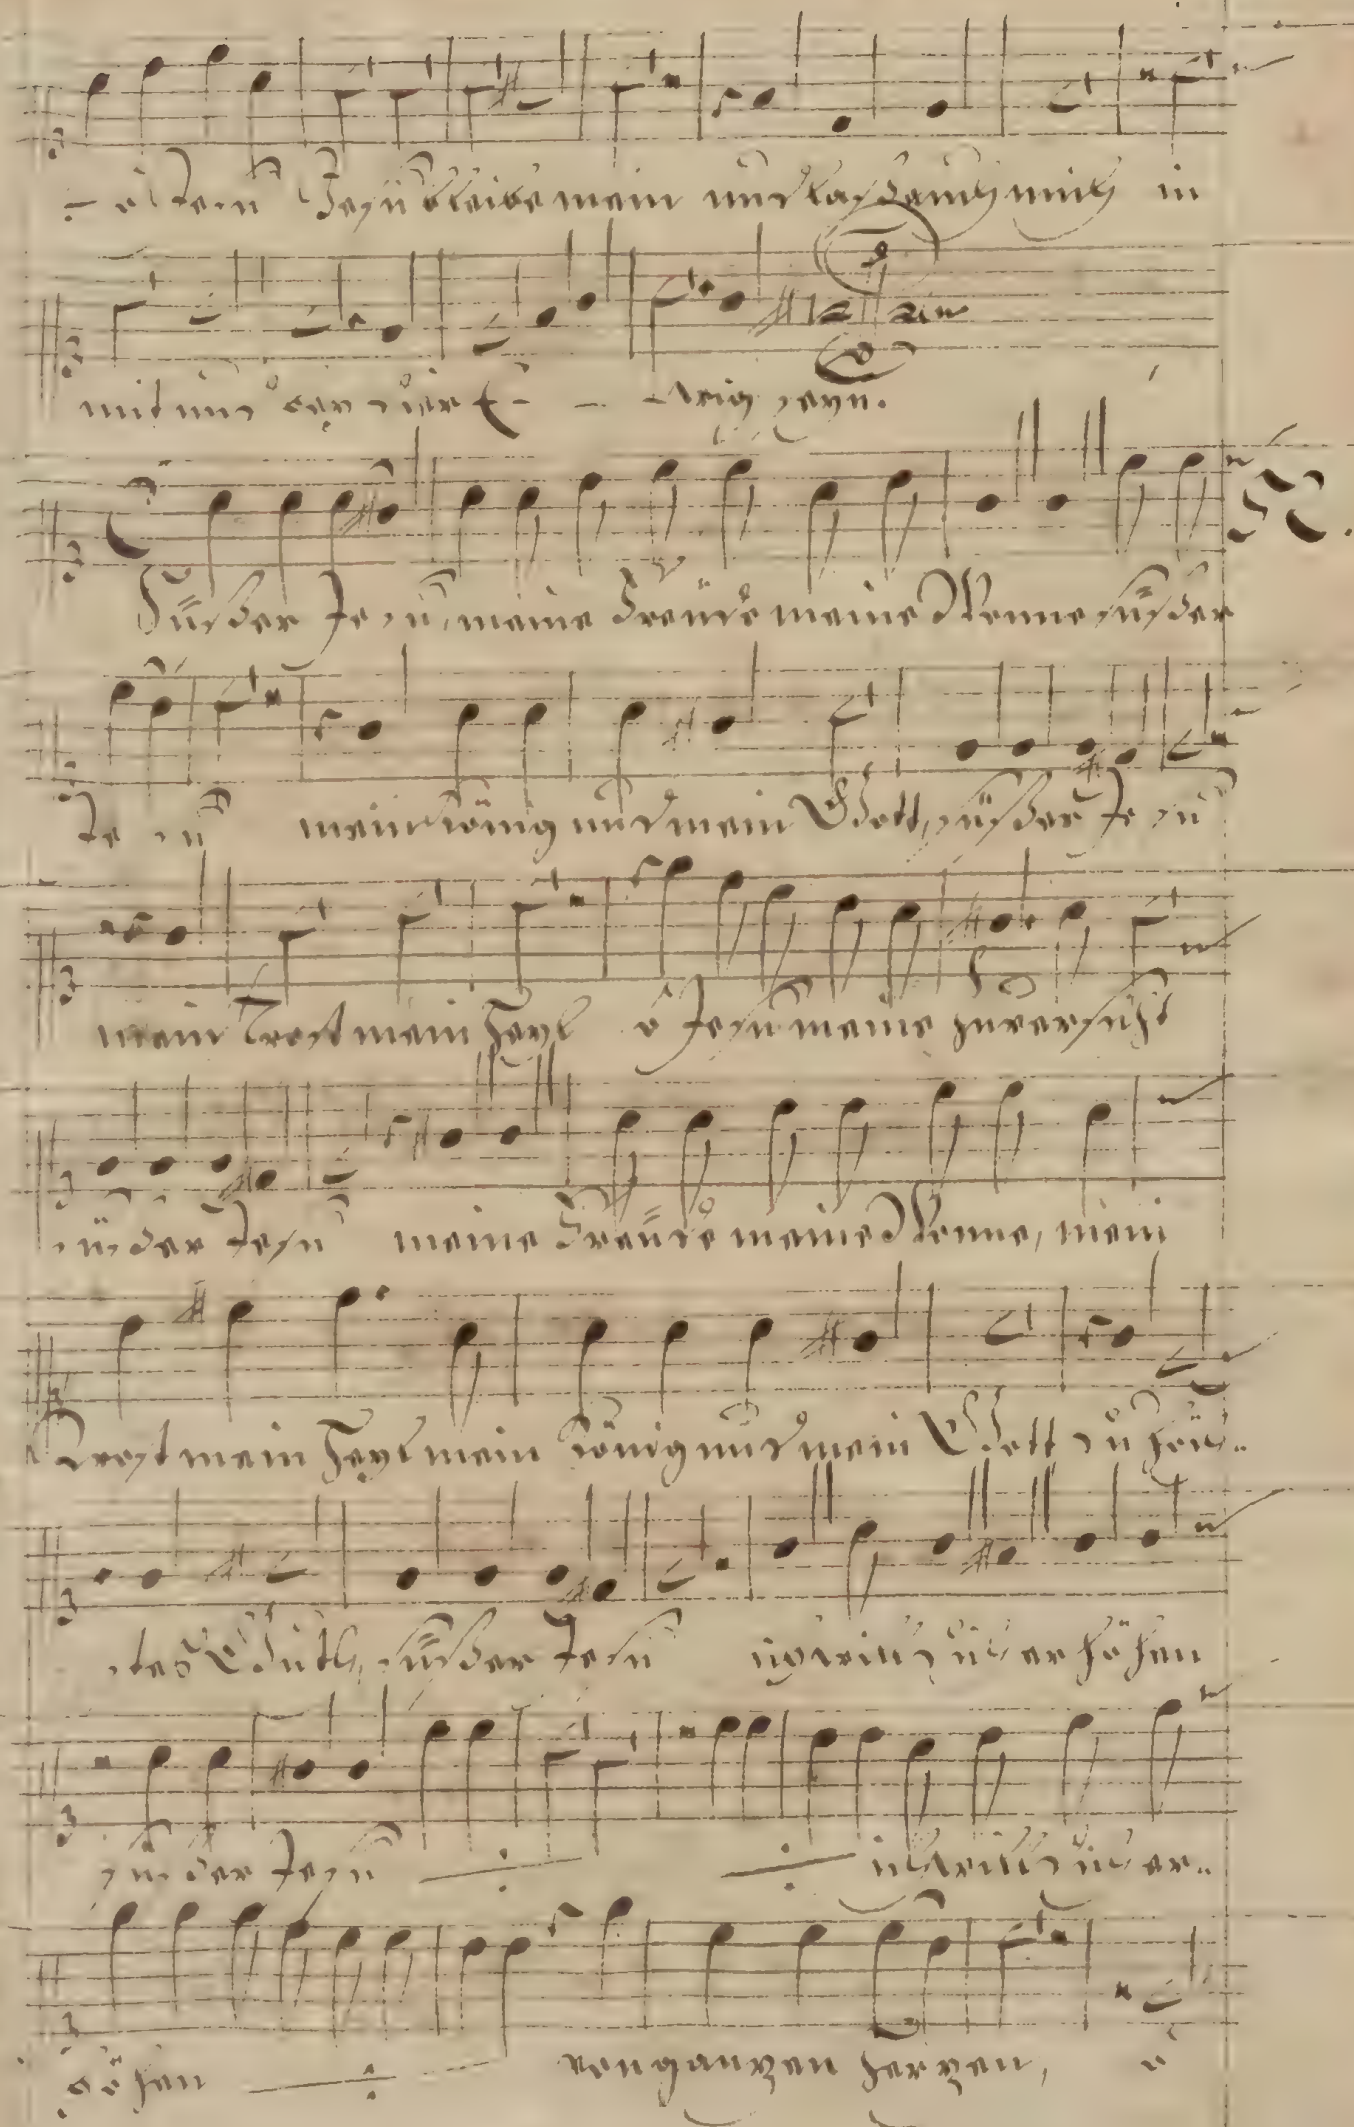 Jesu bleibe mein und laß mich in
mit und bey dir Ewig seyn.
Süßer Jesu, meine Freude meine Wonne süßer
Jesu mein König und mein Gott, süßer Jesu
mein Trost mein Heyl o Jesu meine Zuversicht
süßer Jesu meine Freude meine Wonne, mein
Trost mein Heyl mein König und mein Gott du höch-
stes Guth, süßer Jesu ich will dich erhöhen
süßer Jesu ich will dich er-
höhen von gantzen Hertzen, o